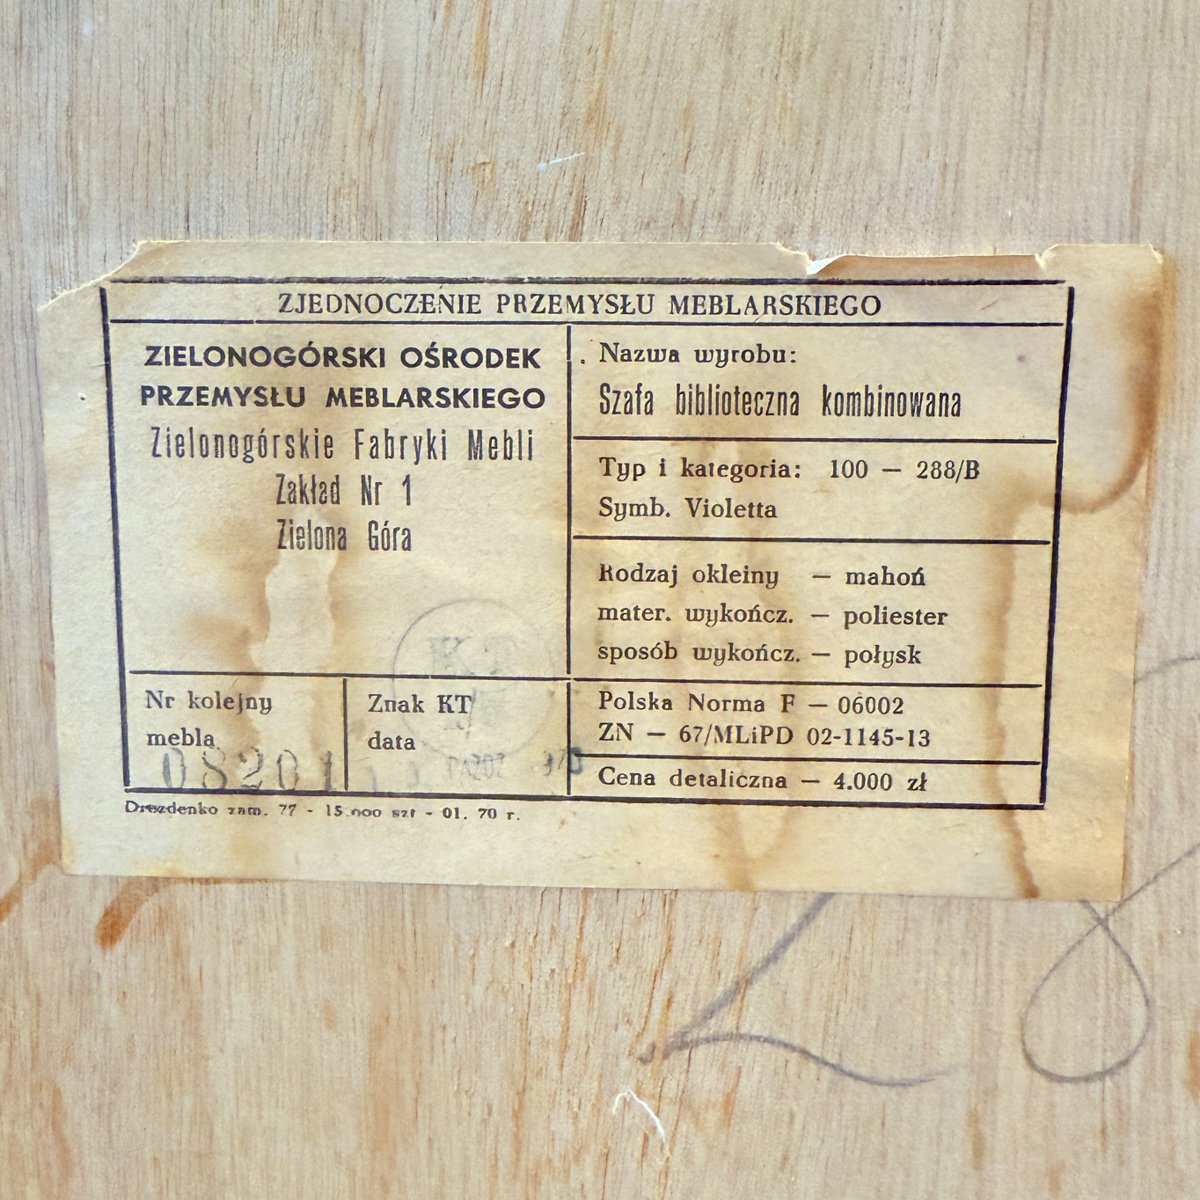 ZJEDNOCZENIE PRZEMYSŁU MEBLARSKIEGO
ZIELONOGÓRSKI OŚRODEK
PRZEMYSŁU MEBLARSKIEGO
Zielonogórskie Fabryki Mebli
Zakład Nr 1
Zielona Góra
Nazwa wyrobu:
Szafa biblioteczna kombinowana
Typ i kategoria: 100 — 288/B
Symb. Violetta
Rodzaj okleiny — mahoń
mater. wykończ. — poliester
sposób wykończ. — połysk
Nr kolejny
mebla
08201
Znak KT
data
KT
Polska Norma F — 06002
ZN — 67/MLiPD 02-1145-13
Cena detaliczna — 4.000 zł
Drezdenko zam. 77 - 15.000 szt - 01. 70 r.
28